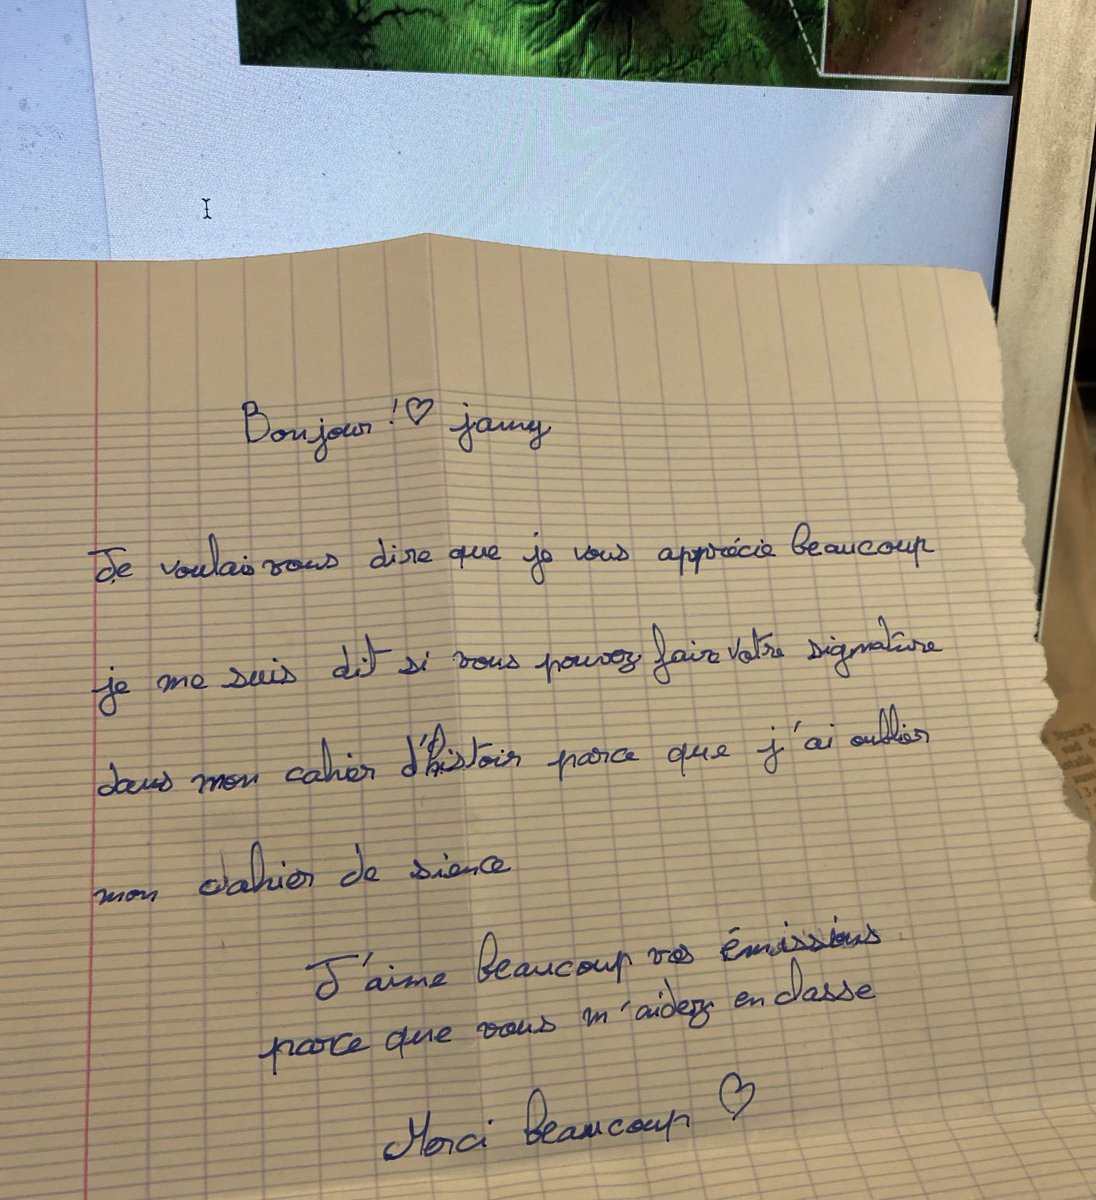 Bonjour !♡ jamy
Je voulais vous dire que je vous apprécie beaucoup
je me suis dit si vous pouvez faire votre signature
dans mon cahier d'histoir parce que j'ai oublier
mon cahier de sience
J'aime beaucoup vos émissions
parce que vous m'aidez en classe
Merci beaucoup ♡